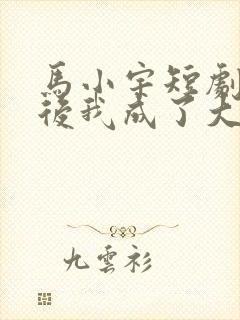 馬小宇短劇
後我成了大
九雲衫